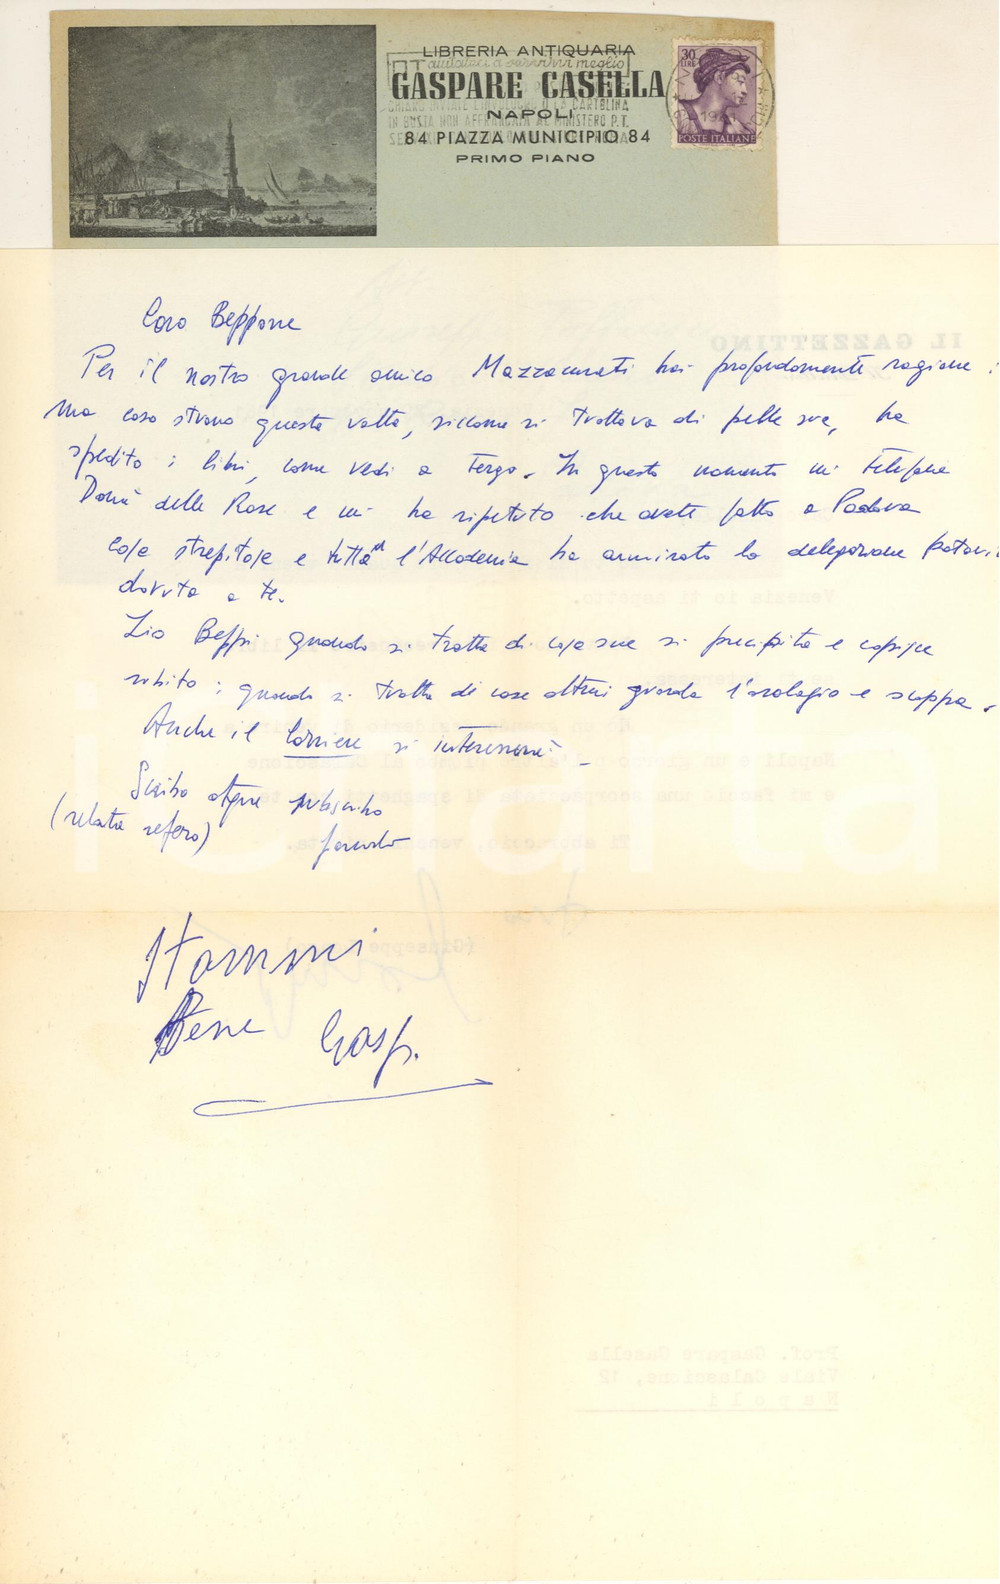 LIBRERIA ANTIQUARIA
GASPARE CASELLA
NAPOLI
84 PIAZZA MUNICIPIO 84
PRIMO PIANO
PT aiutateci a servirvi meglio
INVIATE L'INVOLUCRO O LA CARTOLINA
IN BUSTA NON AFFRANCATA AL MINISTERO P.T.
30
LIRE
POSTE ITALIANE
IL GAZZETTINO
Caro Beppone
Per il nostro grande amico Mazzacurati hai profondamente ragione :
Ma cosa strana questa volta, siccome si trattava di pelle sua, ha
spedito i libri, come vedi a tergo. In questo momento mi telefona
Donà delle Rose e mi ha ripetuto che avete fatto a Padova
cose strepitose e tutta l'Accademia ha ammirato la delegazione
dovuta a te.
Zio Beppi quando si tratta di cose sue si precipita e capisce
subito ; quando si tratta di cose altrui guarda l'orologio e scappa.
Anche il Corriere si interesserà
(relata refero)
Stammi
Bene Gasp.
Venezia io ti aspetto.
Ti abbraccio,
(Giuseppe
Prof. Gaspare Casella
Viale Calascione, 12
Napoli